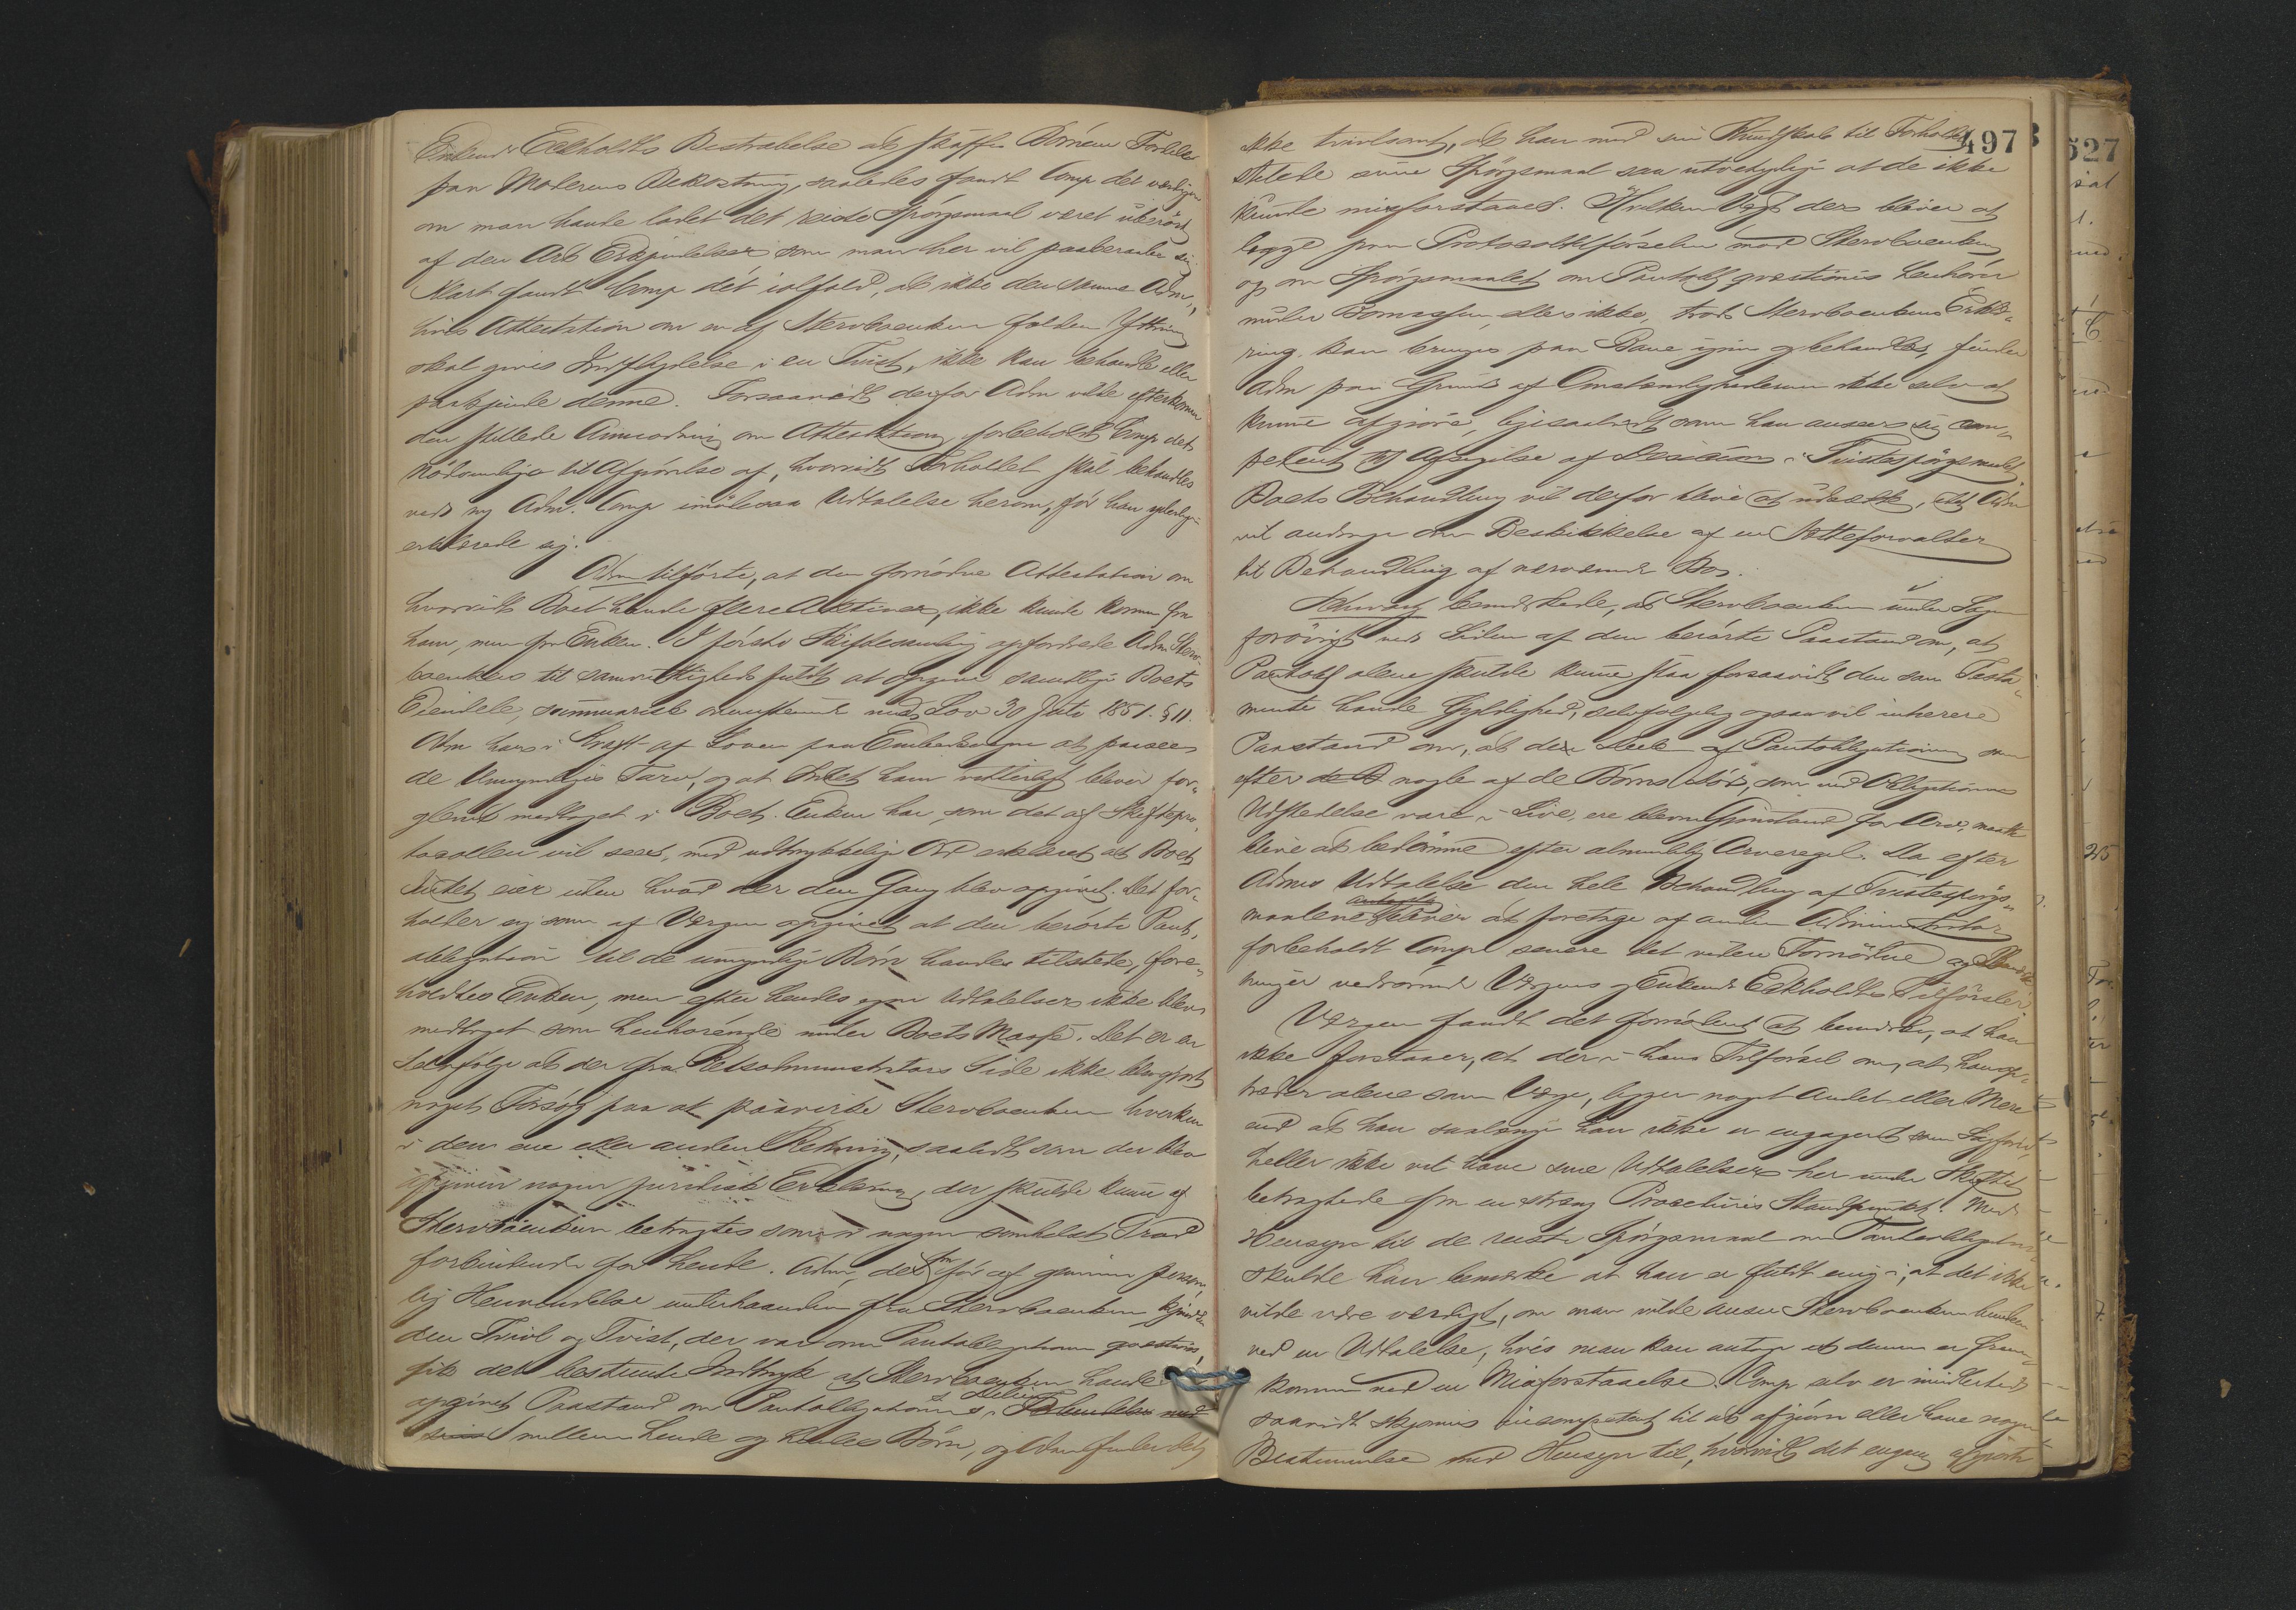 Enkends Eckholdts Bestræbelse at skaffe Børnene Fordele
paa Moderens Bekostning, saaledes fandt Comp det
om man havde ladet det reiste Spørgsmaal været uberørt
af den Art Erkjendelser som man her vil paaberaabe sig
Klart fandt Comp det ialfald, at ikke den samme Adm,
hvis Attestation om en af Stervboenken falden Yttring
skal gives Indflydelse i en Tvist, ikke kan behandle eller
paakjende denne. Forsaavidt derfor Adm vilde efterkomme
den stillede Anmodning om Attestation forbeholdt Comp det
Nødvendige til Afgjørelse af, hvorvidt Forholdet skal behandles
ved ny Adm. Comp imødesaa Udtalelse herom, før han yderligere
erklærede sig.
Adm tilførte, at den fornødne Attestation om
hvorvidt Boet havde flere Aktiver, ikke kunde komme fra
ham, men fra Enken. I første Skiftesamling opfordrede Adm Sterv-
boenken til samvittighedsfuldt at opgive samtlige Boets
Eiendele, summarisk overensstemmende med Lov 30 Juli 1851. § 11.
Adm har i Kraft af Loven paa Embedsvegne at paasee
de Umyndiges Tarv, og at Intet ham vitterligt bliver for-
glemt medtaget i Boet. Enken har, som det af Skiftepro-
tocollen vil sees, med udtrykkelige Ord erklæret at Boet
Intet eier uden hvad der den Gang blev opgivet. Det for-
holder sig som af Værgen opgivet at den berørte Pant-
obligation til de umyndige Børn havdes tilstede, fore-
holdtes Enken, men efter hendes egne Udtalelser ikke blev
medtaget som henhørende under Boets Masse. Det er en
Selvfølge at der fra Retsadministrators Side ikke blev gjort
noget Forsøg paa at paavirke Stervboenken hverken
i den ene eller anden Retning, saalidt som der blev
afgiven nogen juridisk Erklæring, der skulde kunne af
Stervboenken betragtes som i nogen somhelst Grad
forbindende for hende. Adm, der før af
lig Henvendelse underhaanden fra Stervboenken
den Tvivl og Tvist, der var om Pantobligationen quæstionis,
fik det bestemte Indtryk at Stervboenken havde
opgivet Paastand om Pantobligationens Deling
mellem hende og hendes Børn, og Adm finder det
497
527
ikke tvivlsomt, at han med sin Kundskab til Forholdet
stilede sine Spørgsmaal saa utvetydige at de ikke
kunde misforstaaes. Hvilken Vægt der bliver at
lægge paa Protocoltilførselen mod Stervboenken
og om Spørgsmaalet om Pantobl quæstionis henhører
under Bomassen, eller ikke, trods Stervboenkens Erklæ-
ring kan bringes paa Bane igjen og behandles, finder
Adm paa Grund af Omstændighederne ikke selv at
kunne afgjøre, ligesaalidt som han anseer sig com-
petent til Afsigelse af Decision i Tvistespørgsmaalet
Boets Behandling vil derfor blive at udsætte, idet Adm
vil andrage om Beskikkelse af en Sætteforvalter
til Behandling af nærværende Bo.
bemærkede, at Stervboenken under Sagen
forøvrigt ved Siden af den berørte Paastand om, at
Pantobl alene skulde kunne staa forsaavidt den som Testa-
mente havde Gyldighed, selvfølgelig ogsaa vil inherere
Paastand om, at den Deel af Pantobligationen som
efter nogle af de Børns Død, som ved Obligationens
Udstedelse vare i Live, ere blevne Gjenstand for Arv, maatte
blive at bedømme efter almindelig Arveregel. Da efter
Adms Udtalelse den hele Behandling af Tvistespørgs-
maalene antagelig bliver at foretage af anden Administrator
forbeholdt Comp senere det videre Fornødne og
ninger vedrørende Værgens og Enkends Eckholdts Tilførsler
Værgen fandt det fornødent at bemærke, at han
ikke forstaaer, at der i hans Tilførsel om, at han op-
træder alene som Værge, ligger noget Andet eller Mere
end at han saalænge han ikke er engageret som Sagfører,
heller ikke vil have sine Udtalelser her under Skiftet
betragtede fra en streng Procedures Standpunkt. Med
Hensyn til de reiste Spørgsmaal om Pantobligationen
skulde han bemærke at han er fuldt enig i, at det ikke
vilde være værdigt, om man vilde ansee Stervboenken bunden
ved en Udtalelse, hvis man kan antage at denne er frem-
kommen ved en Misforstaaelse. Comp selv er imidlertid
saavidt skjønnes incompetent til at afgjøre eller have nogen
Bestemmelse med Hensyn til, hvorvidt det engang afgjorte